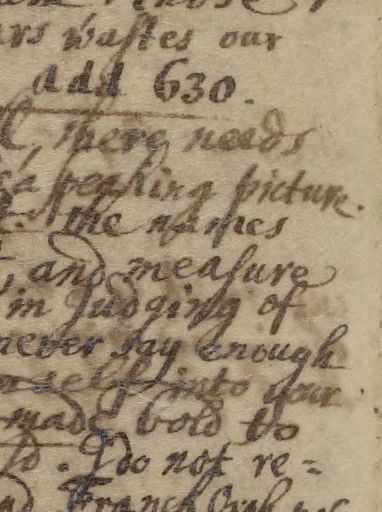 wastes our
add 630.
there needs
a speaking picture.
the names
, and measure
in Judging of
never say enough
self into your
made bold to
. I do not re=
French